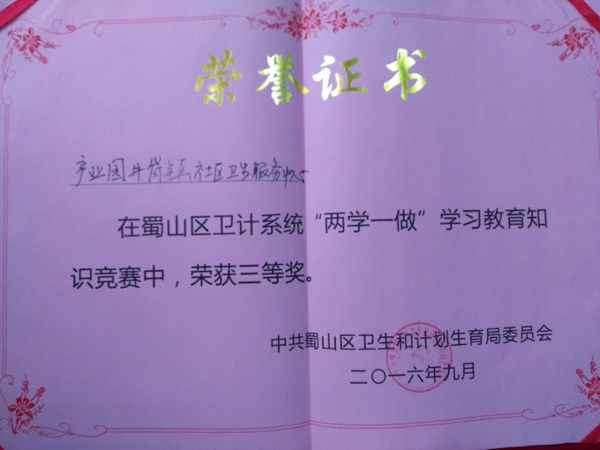 荣誉证书
产业园井岗镇社区卫生服务中心
在蜀山区卫计系统“两学一做”学习教育知
识竞赛中，荣获三等奖。
中共蜀山区卫生和计划生育局委员会
二〇一六年九月